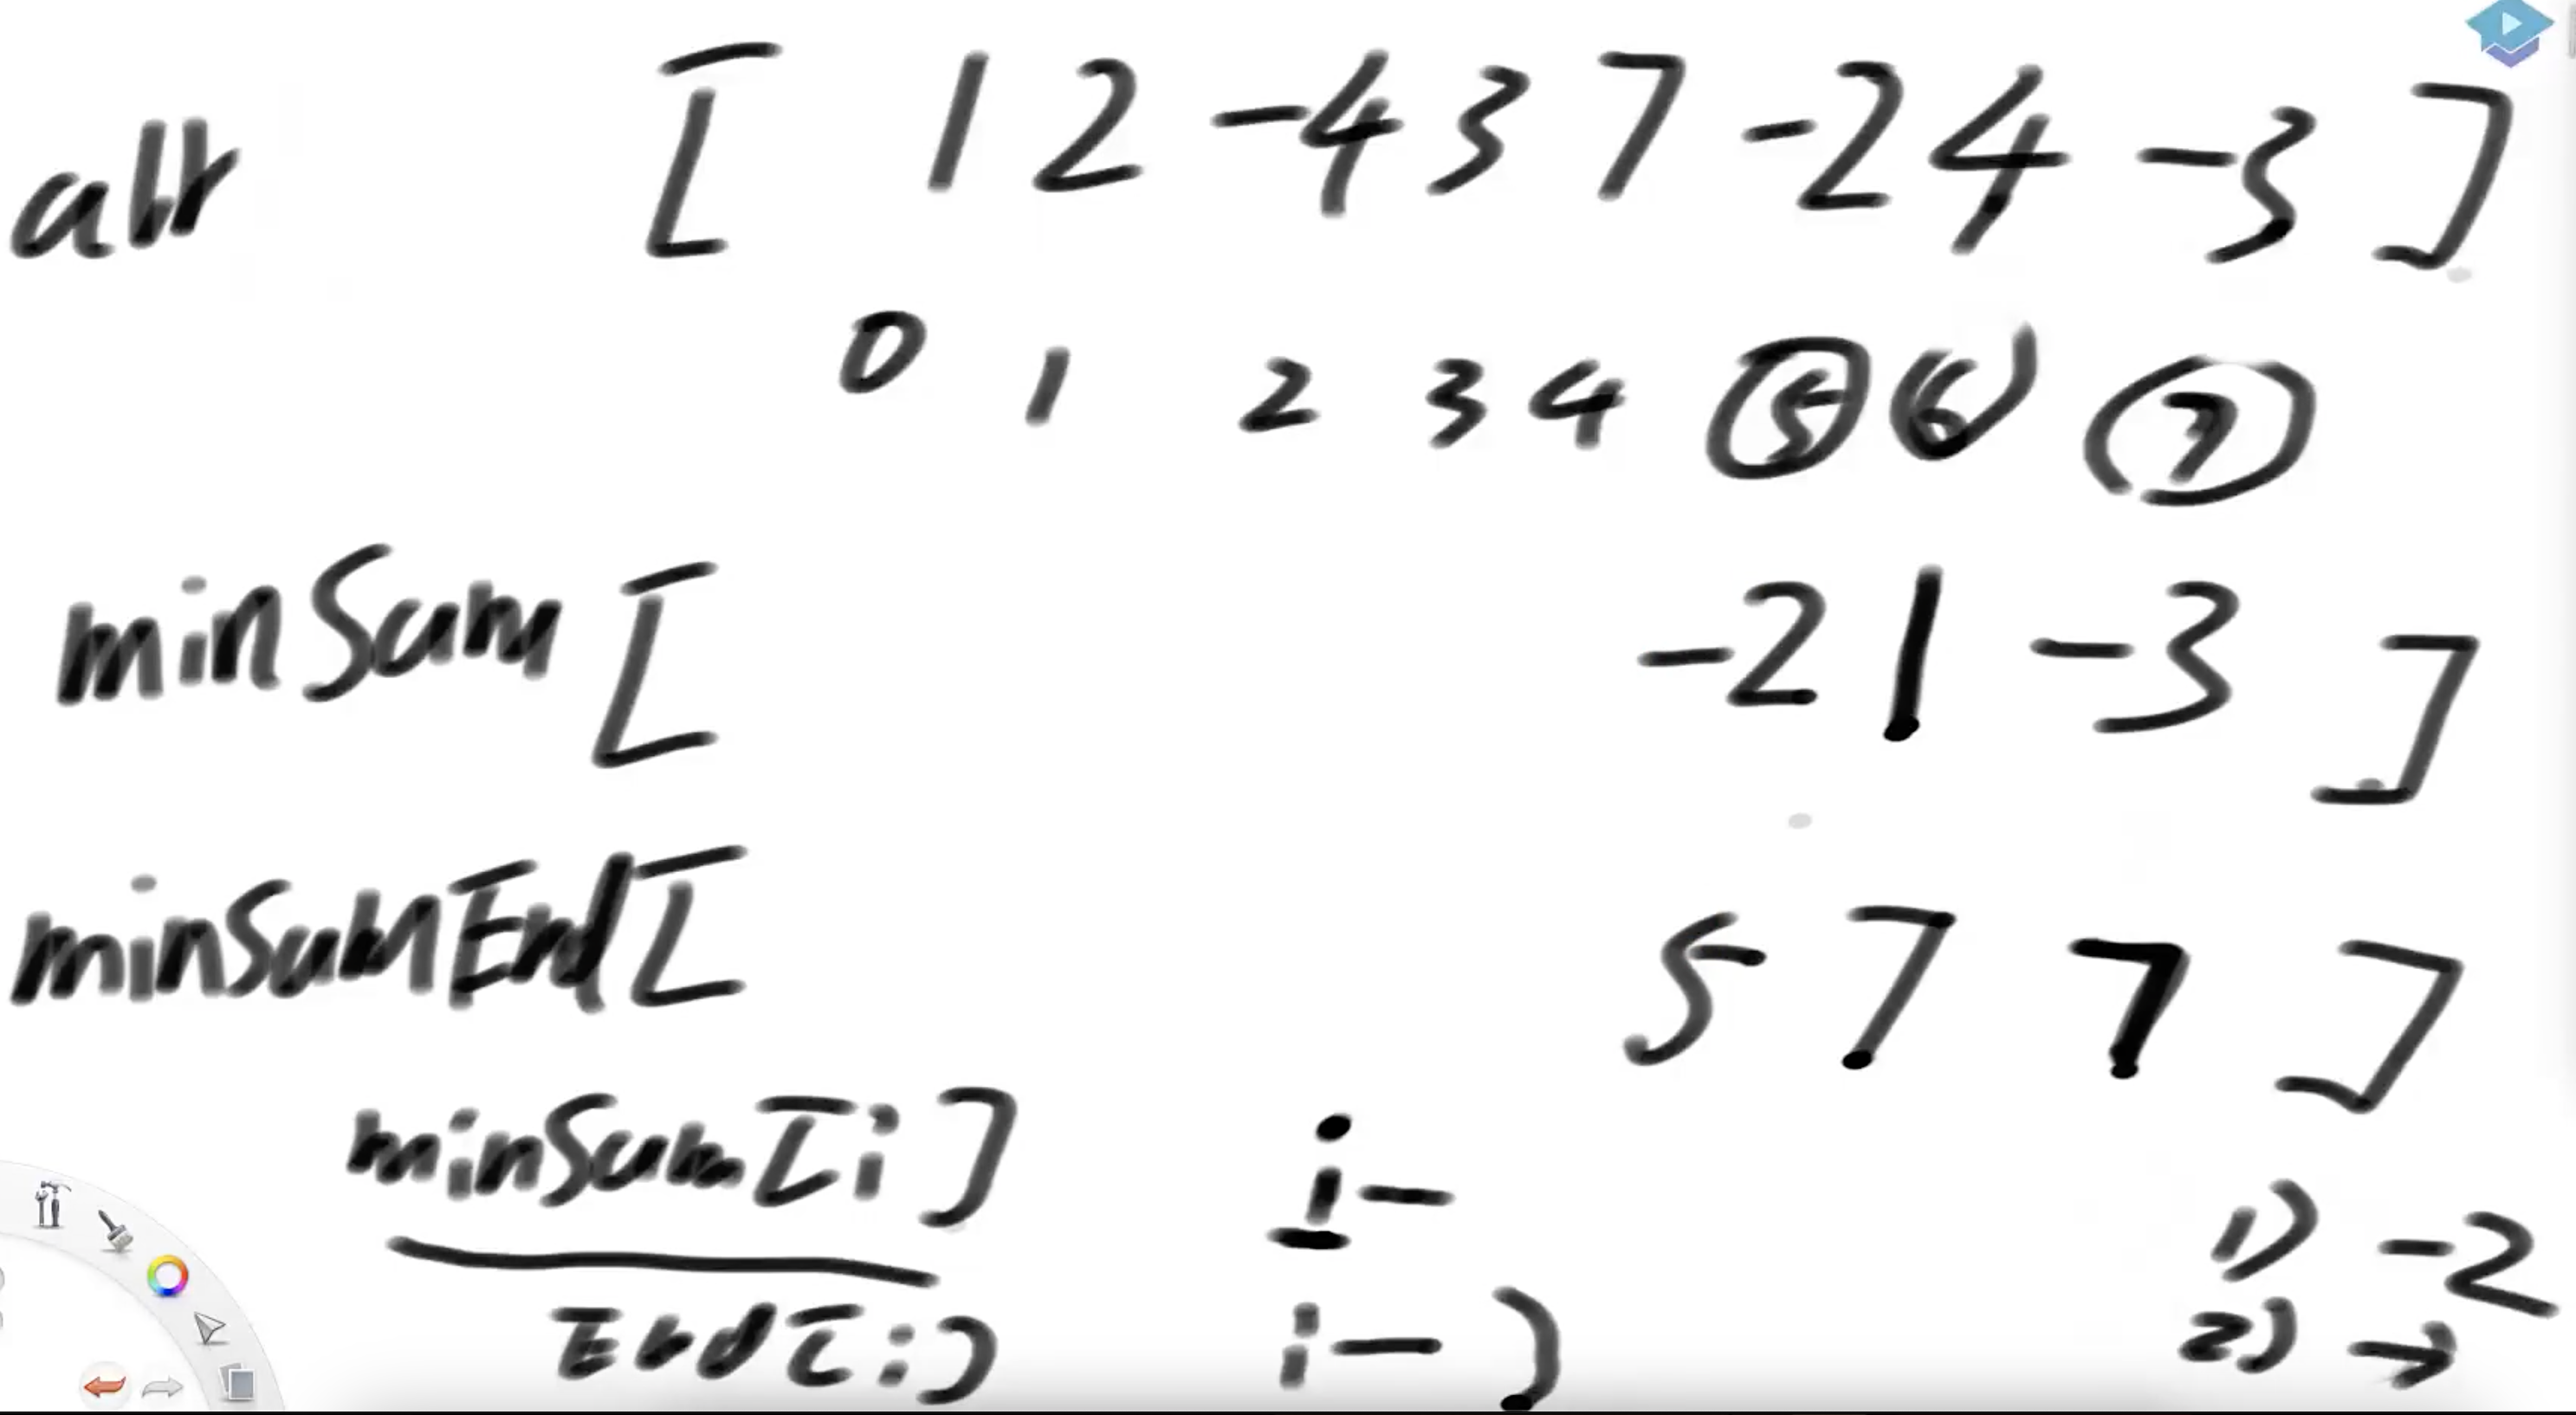 arr [ 1 2 -4 3 7 -2 4 -3 ]
0 1 2 3 4 5 6 7
minSum [ -2 1 -3 ]
minSumEnd [ 5 7 7 ]
minSum[i] i-
End[i] i-
1) -2
2) →